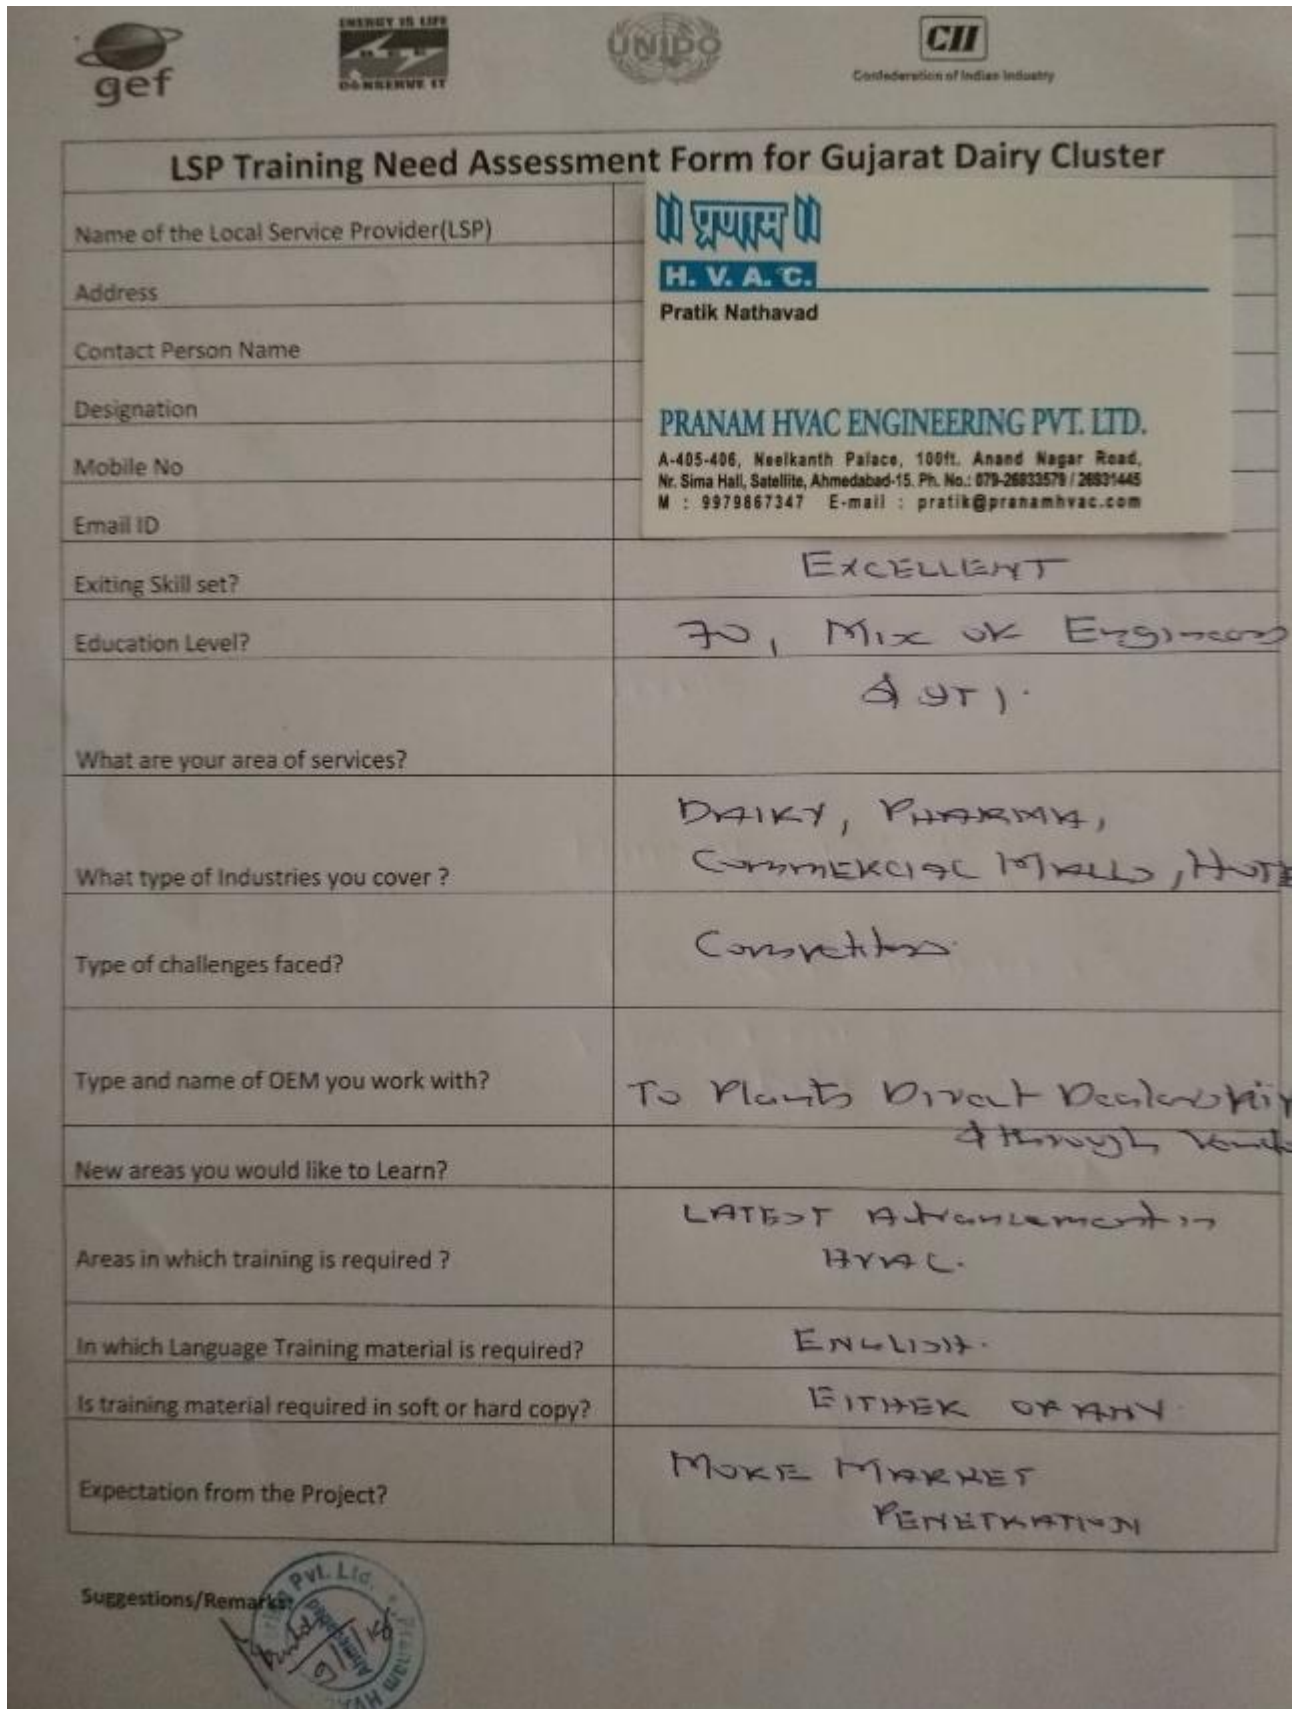 gef
ENERGY IS LIFE
CONSERVE IT
UNIDO
CII
Confederation of Indian Industry
LSP Training Need Assessment Form for Gujarat Dairy Cluster
Name of the Local Service Provider(LSP)
Address
Contact Person Name
Designation
Mobile No
Email ID
॥ प्रणाम ॥
H. V. A. C.
Pratik Nathavad
PRANAM HVAC ENGINEERING PVT. LTD.
A-405-406, Neelkanth Palace, 100ft. Anand Nagar Road,
Nr. Sima Hall, Satellite, Ahmedabad-15. Ph. No.: 079-26933579 / 26931445
M : 9979867347 E-mail : pratik@pranamhvac.com
Exiting Skill set?
EXCELLENT
Education Level?
70, Mix of Engineers
& ITI.
What are your area of services?
What type of Industries you cover ?
DAIRY, PHARMA,
COMMERCIAL MALLS, HOTE
Type of challenges faced?
Competitors
Type and name of OEM you work with?
To Plants Direct Dealership
& through
New areas you would like to Learn?
Areas in which training is required ?
LATEST Advancement in
HVAC.
In which Language Training material is required?
ENGLISH.
Is training material required in soft or hard copy?
EITHER OR ANY
Expectation from the Project?
MORE MARKET
PENETRATION
Suggestions/Remarks:
Pvt. Ltd.
Pranam HVAC